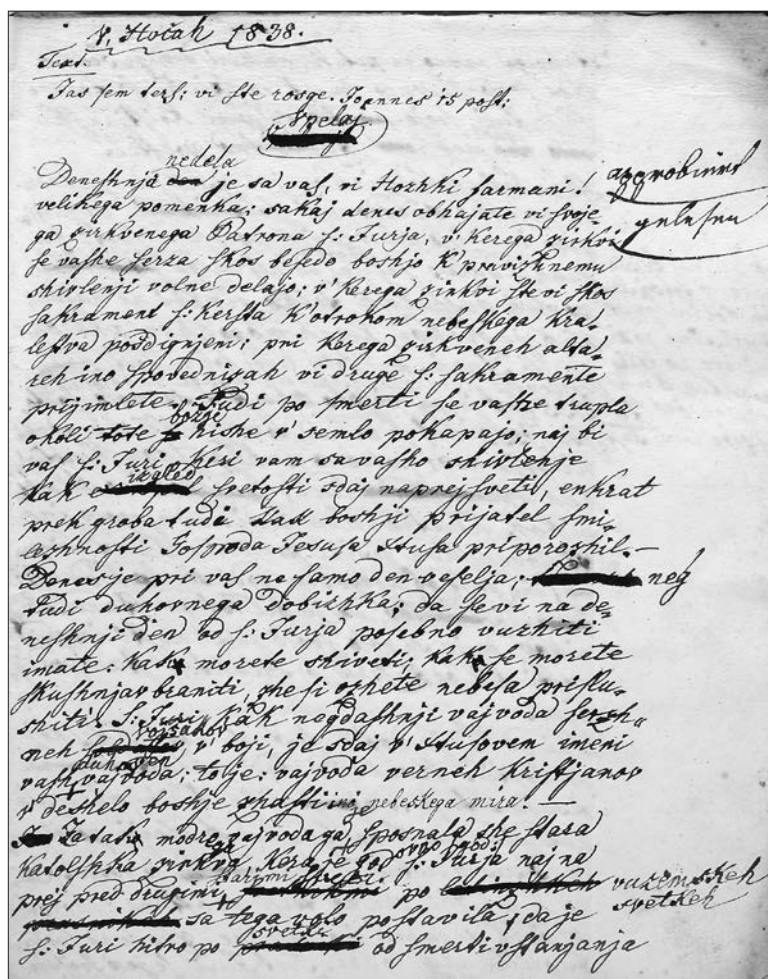 V, Hočah 1838.
Text.
Jas sem ters: vi ste rosge. Joannes 15 post:
Vpelaj
nedela
Deneshnja den je sa vas, vi Hozhki farmani!
approbirt
velikega pomenka; sakaj denes obhajate vi svoje-
ga zirkvenega Patrona s: Jurja, v' kerega zirkvi
gelesen
se vashe serza skos besedo boshjo k pravizhnemu
shivlenji volne delajo; v' kerega zirkvi ste vi skos
sakrament s: kersta k' otrokom nebeskega kra-
lestva posdignjeni; pri kerega zirkveneh alta-
reh ino spovednizah vi druge s: sakramente
prijimlete. Tudi po smerti se vashe trupla
boshje
okoli tote hishe v' semlo pokapajo; naj bi
vas s: Juri, keri vam sa vasho shivlenje
isgled
kak svetosti sdaj naprej sveti, enkrat
prek groba tudi kak boshji prijatel smi-
leshnosti Gospoda Jesusa Ktusa priporozhil. —
Denes je pri vas ne samo den veselja; neg
tudi duhovnega dobizhka; da se vi na de-
neshnji den od s: Jurja posebno vuzhiti
imate: kak morete shiveti; kak se morete
skushnjav braniti, zhe si ozhete nebesa prislu-
shiti. S: Juri, kak negdashnji vajvoda serzh-
vojsakov
neh v' boji, je sdaj v' Ktusovem imeni
duhoven
vash vajvoda; to je: vajvoda verneh kristjanov
v' deshelo boshje zhasti ino nebeskega mira. —
Sa taki modre vajvoda ga je sposnala zhe stara
katolshka zirkva, kera je god s: Jurja naj na
prej pred drugimi po vuzemskeh
svetkeh
sa tega volo postavila, da je
svetki
s: Juri hitro po od smerti vstanjanja